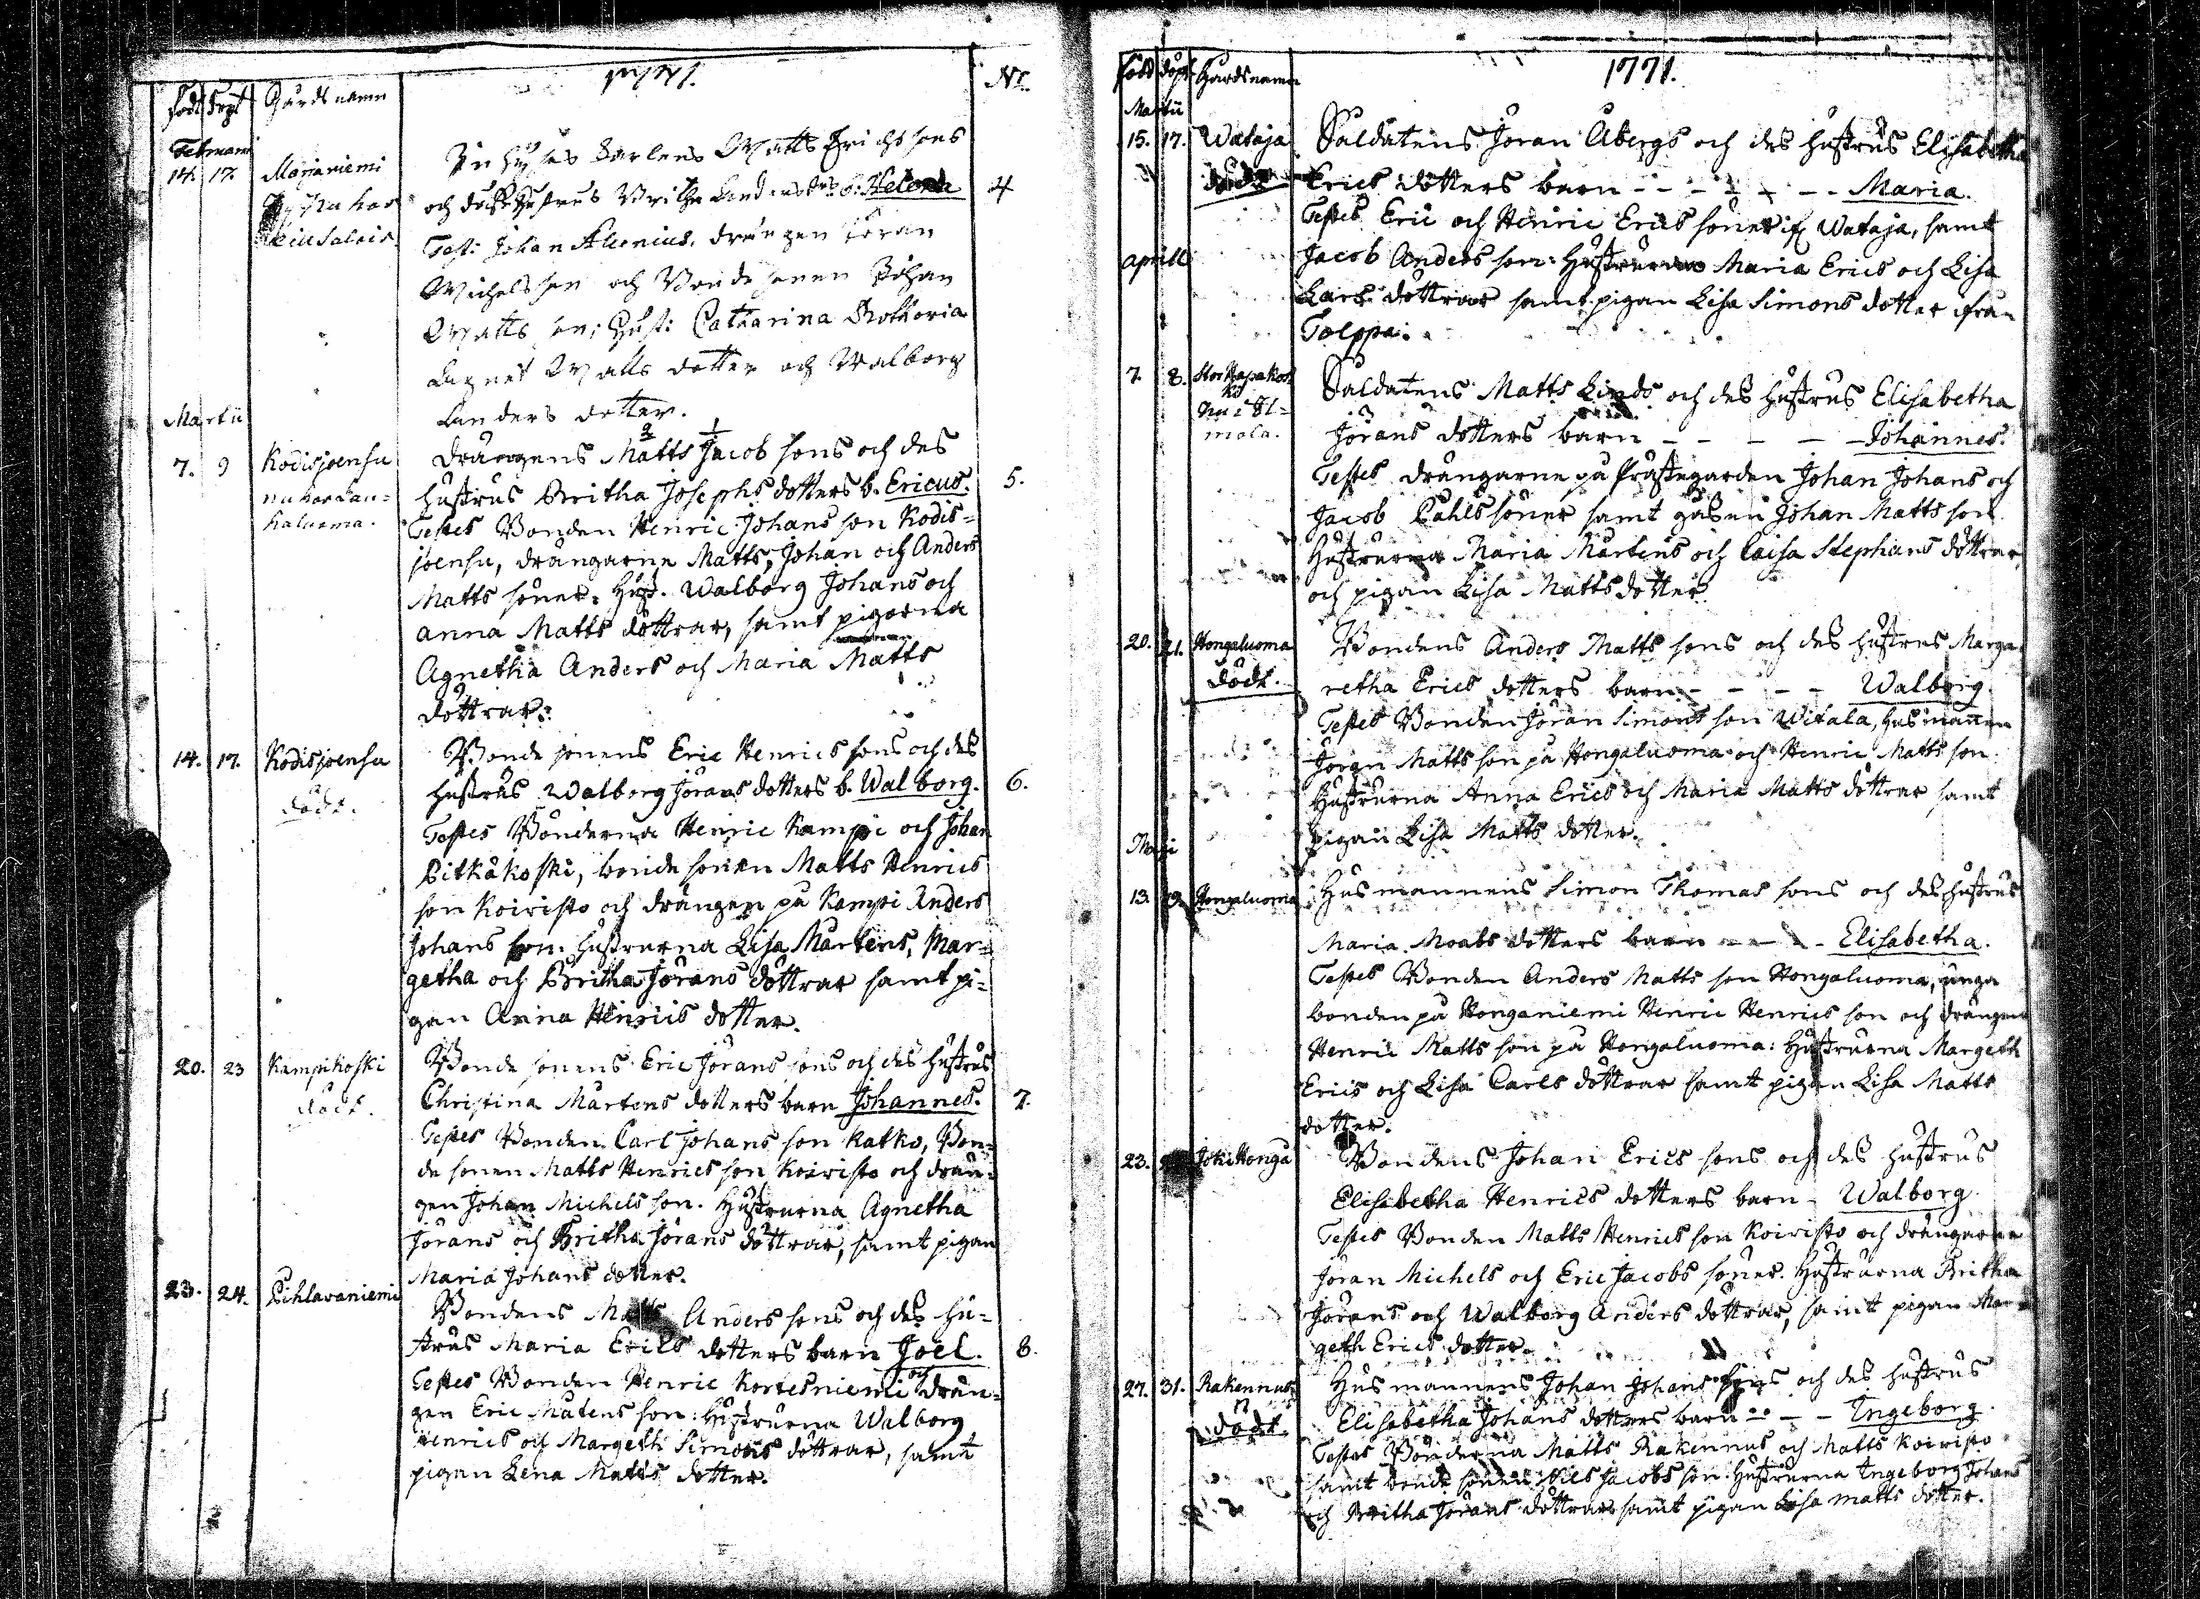 1771.
Född Döpt Gårds namn
No.
Februarii
14. 17. Marjaniemi
Inhyses Karlens Matts Erichssons
och dess Hustrus Britha Anders dr. b. Helena 4
Test: Johan Alcenius, drängen Jöran
Michelsson och Bonde sonen Johan
Matts son; Hust: Catharina Rothovia
Agnet Matts dotter och Walborg
Anders dotter.
Martii
7. 9 Kodisjoensu
nu har Lau=
kaluoma.
2 1
Drängens Matts Jacob sons och des
hustrus Britha Josephs dotters b. Ericus. 5.
Testes Bonden Henric Johans son Kodis=
joensu, drängarne Matts, Johan och Anders
Matts söner. Hust. Walborg Johans och
Anna Matts döttrar, samt pigorna
Agnetha Anders och Maria Matts
döttrar.
14. 17. Kodisjoensu
dödt.
Bonde sonens Eric Henrics sons och des
hustrus Walborg Jörans dotters b. Walborg. 6.
Testes Bönderna Henric Kampi och Johan
Pitkäkoski, bonde sonen Matts Henrics
son Koivisto och drängen på Kampi Anders
Johans son. hustrurna Lisa Mårtens, Mar=
getha och Britha Jörans döttrar samt pi=
gan Anna Henrics dotter.
20. 23 Kampikoski
dödt.
Bonde sonens Eric Jörans sons och des hustrus
Christina Mårtens dotters barn Johannes. 7.
Testes Bonden Carl Johans son Katko, Bon=
de sonen Matts Henrics son Koivisto och drän=
gen Johan Michels son. Hustrurna Agnetha
Jörans och Britha Jörans döttrar, samt pigan
Maria Johans dotter.
23. 24. Pihlavaniemi
Bondens Matts Anders sons och des hu=
strus Maria Erics dotters barn Joel. 8.
Testes Bonden Henric Kortesniemi och drän=
gen Eric Matens son: Hustrurna Walborg
Henrics och Margeth Simons döttrar, samt
pigan Lena Matts dotter.
1771.
född döpt Gårdsnamn
Martii
15. 17. Wataja
dödt
Soldatens Jöran Åbergs och des hustrus Elisabetha
Erics dotters barn - - - - - Maria.
Testes Eric och Henric Erics söner if Wataja, samt
Jacob Anders son: Hustrurna Maria Erics och Lisa
Lars döttrar samt pigan Lisa Simons dotter ifrån
Tolppa.
Aprill
7. 8. Stor Hapakos
ko
nu i Il=
mola.
Soldatens Matts Linds och des hustrus Elisabetha
Jörans dotters barn - - - - - Johannes.
Testes drängarne på Prästegården Johan Johans och
Jacob Påhls söner samt gåsen Johan Matts son
Hustrurna Maria Mårtens och Caisa Stephans döttrar
och pigan Lisa Matts dotter.
20. 21. Hongaluoma
dödt.
Bondens Anders Matts sons och des hustrus Marga
retha Erics dotters barn - - - - Walborg.
Testes Bonden Jöran Simons son Witala, husmannen
Jöran Matts son på Hongaluoma och Henric Matts son.
Hustrurna Anna Erics och Maria Matts döttrar samt
pigan Lisa Matts dotter.
Maji
13. Hongaluoma
Husmannens Simon Thomas sons och des hustrus
Maria Moabs dotters barn - - - Elisabetha.
Testes Bonden Anders Matts son Hongaluoma, unga
bonden på Honganiemi Henric Henrics son och drängen
Henric Matts son på Hongaluoma: Hustrurna Margeth
Erics och Lisa Carls döttrar samt pigan Lisa Matts
dotter.
23. JokiHonga
Bondens Johan Erics sons och des hustrus
Elisabetha Henrics dotters barn - Walborg.
Testes Bonden Matts Henrics son Koivisto och drängarne
Jöran Michels och Eric Jacobs söner. Hustrurna Britha
Jörans och Walborg Anders döttrar, samt pigan Mar=
geth Erics dotter.
27. 31. Rakennus
dödt.
Husmannens Johan Johans sons och des hustrus
Elisabetha Johans dotters barn - - - Ingeborg.
Testes Bönderna Matts Rakennus och Matts Koivisto
samt bonde sonen Nils Jacobs son. Hustrurna Ingeborg Johans
och Britha Jörans döttrar samt pigan Lisa Matts dotter.